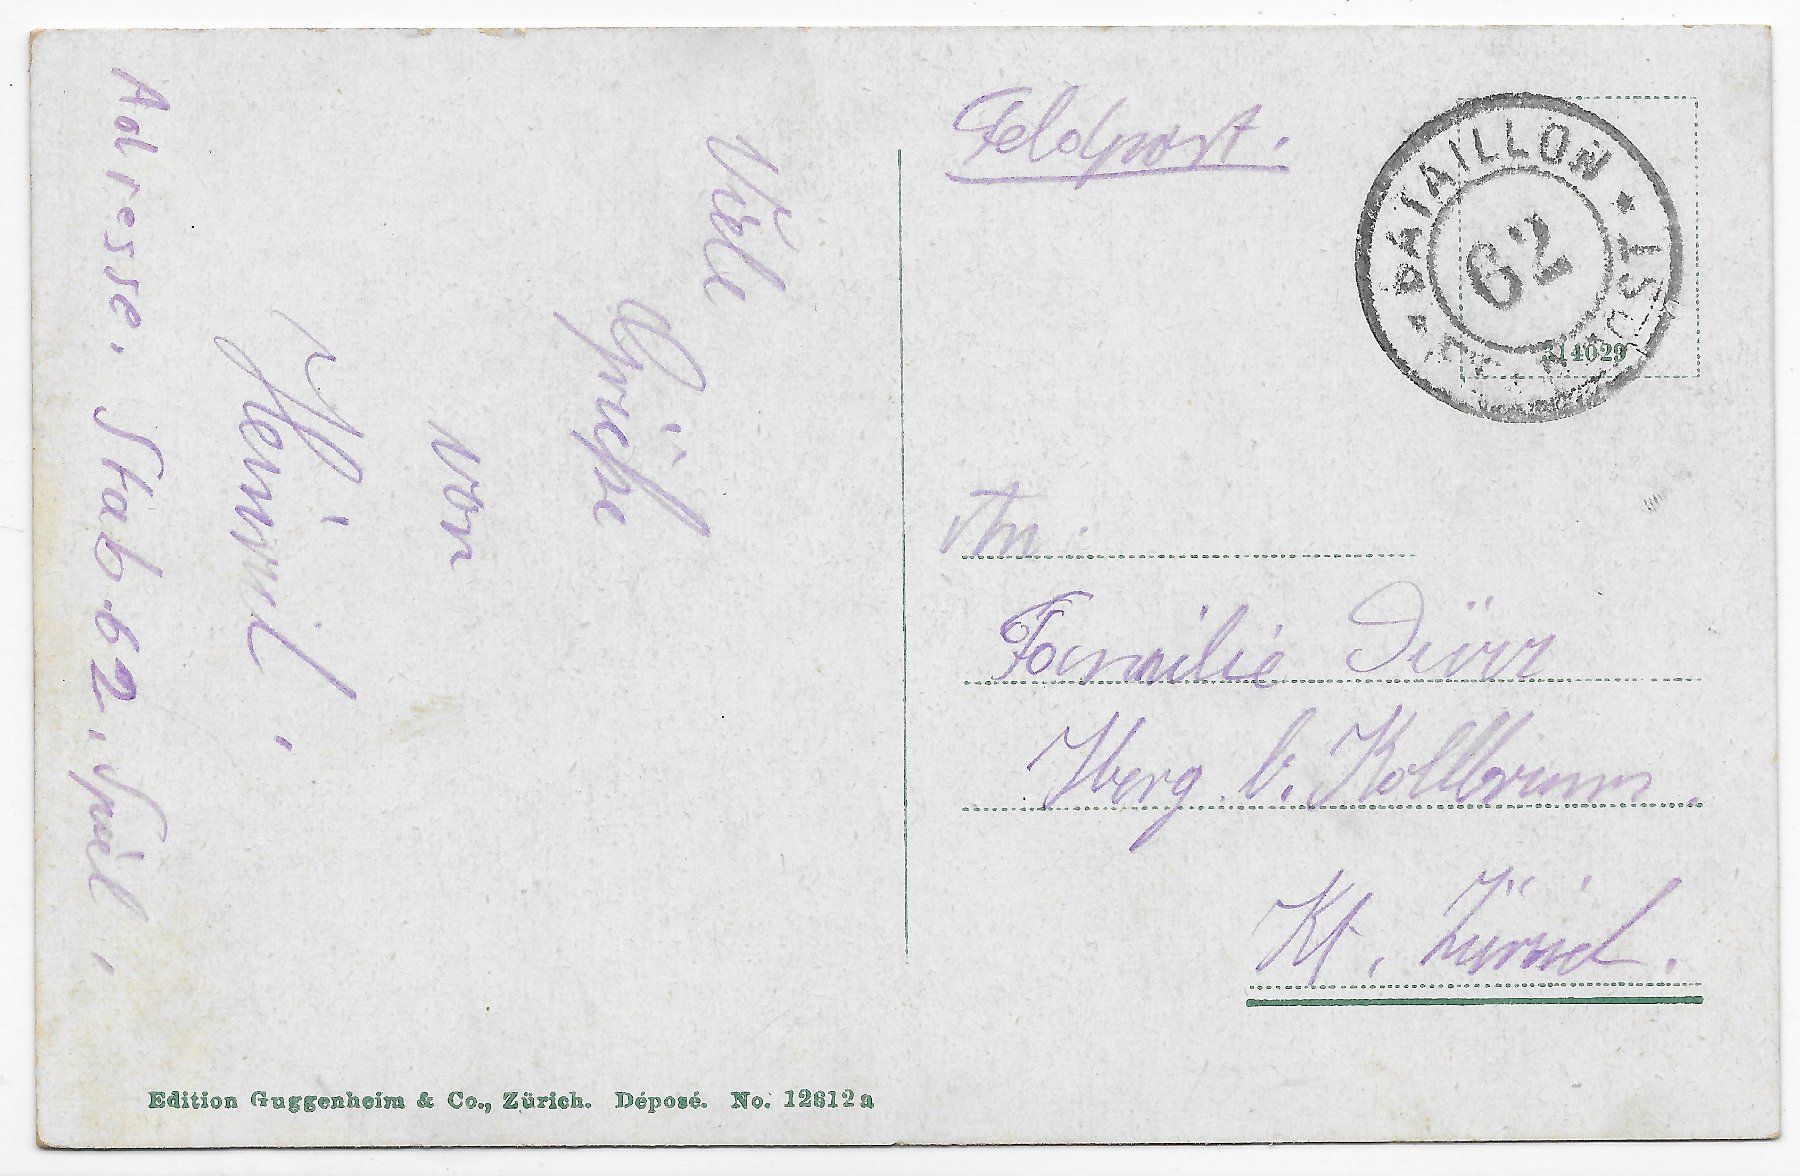 Viele
Grüße
von
Heinrich.
Adresse. Stab. 62. Spiel.
Feldpost.
BATAILLON
62
314029
An
Familie Dürr
Iberg b. Kollbrunn.
Kt. Zürich.
Edition Guggenheim & Co., Zürich. Déposé. No. 12612 a